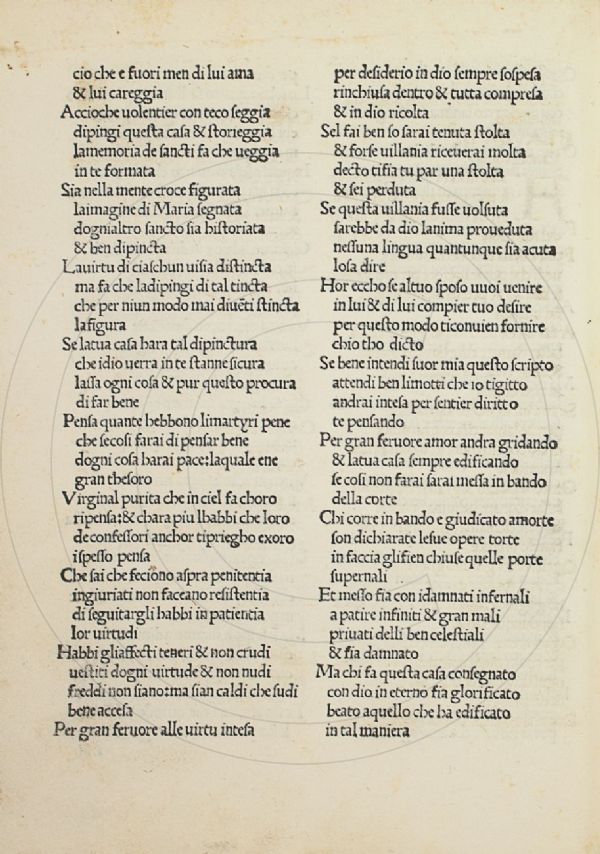 cio che e fuori men di lui ama
& lui careggia
Accioche uolentier con teco seggia
dipingi questa casa & storieggia
lamemoria de sancti fa che ueggia
in te formata
Sia nella mente croce figurata
laimagine di Maria segnata
dognialtro sancto sia historiata
& ben dipincta
Lauirtu di ciaschun uisia distincta
ma fa che ladipingi di tal tincta
che per niun modo mai diuēti stincta
lafigura
Se latua casa hara tal dipinctura
che idio uerra in te stanne sicura
lassa ogni cosa & pur questo procura
di far bene
Pensa quante hebbono limartyri pene
che secosi farai di pensar bene
dogni cosa harai pace:laquale ene
gran thesoro
Virginal purita che in ciel fa choro
ripensa:& chara piu lhabbi che loro
de confessori anchor tipriegho exoro
ispesso pensa
Che sai che feciono aspra penitentia
ingiuriati non faceano resistentia
di seguitargli habbi in patientia
lor uirtudi
Habbi gliaffecti teneri & non crudi
uestiti dogni uirtude & non nudi
freddi non siano:ma sian caldi che sudi
bene accesa
Per gran feruore alle uirtu intesa
per desiderio in dio sempre sospesa
rinchiusa dentro & tutta compresa
& in dio ricolta
Sel fai ben so sarai tenuta stolta
& forse uillania riceuerai molta
decto tifia tu par una stolta
& sei perduta
Se questa uillania fusse uolsuta
sarebbe da dio lanima proueduta
nessuna lingua quantunque sia acuta
losa dire
Hor eccho se altuo sposo uuoi uenire
in lui & di lui compier tuo desire
per questo modo ticonuien fornire
chio tho dicto
Se bene intendi suor mia questo scripto
attendi ben limotti che io tigitto
andrai intesa per sentier diritto
te pensando
Per gran feruore amor andra gridando
& latua casa sempre edificando
se cosi non farai sarai messa in bando
della corte
Chi corre in bando e giudicato amorte
son dichiarate lesue opere torte
in faccia glifien chiuse quelle porte
supernali
Et messo fia con idamnati infernali
a patire infiniti & gran mali
priuati delli ben celestiali
& fia damnato
Ma chi fa questa casa consegnato
con dio in eterno fia glorificato
beato aquello che ha edificato
in tal maniera